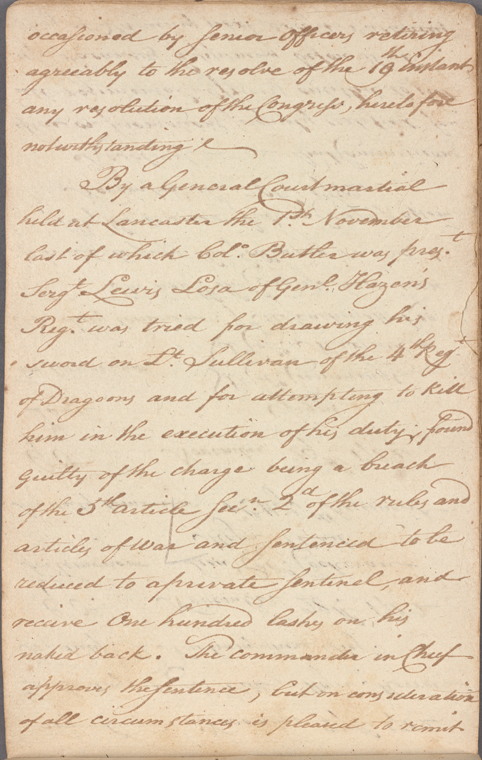 occasioned by senior officers retiring
agreeably to the resolve of the 19th Instant
any resolution of the Congress, heretofore
notwithstanding
By a General Court martial
held at Lancaster the 1st November
last of which Colo. Butler was prest.
Sergt. Lewis Losa of Genl. Hazen's
Regt. was tried for drawing his
sword on Lt. Sullivan of the 4th Regt
of Dragoons and for attempting to kill
him in the execution of his duty, found
guilty of the charge being a breach
of the 5th article Secn. 2d of the rules and
articles of war and sentenced to be
reduced to a private sentinel, and
receive One hundred lashes on his
naked back. The commander in Chief
approves the sentence, but on consideration
of all circumstances is pleased to remit